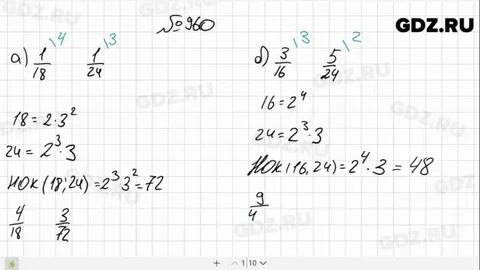 №960
GDZ.RU
а) 1/18 \4 1/24 \3
18 = 2·3²
24 = 2³·3
НОК(18,24) = 2³·3² = 72
4/18 3/72
б) 3/16 \3 5/24 \2
16 = 2⁴
24 = 2³·3
НОК(16,24) = 2⁴·3 = 48
9/4
1 | 10